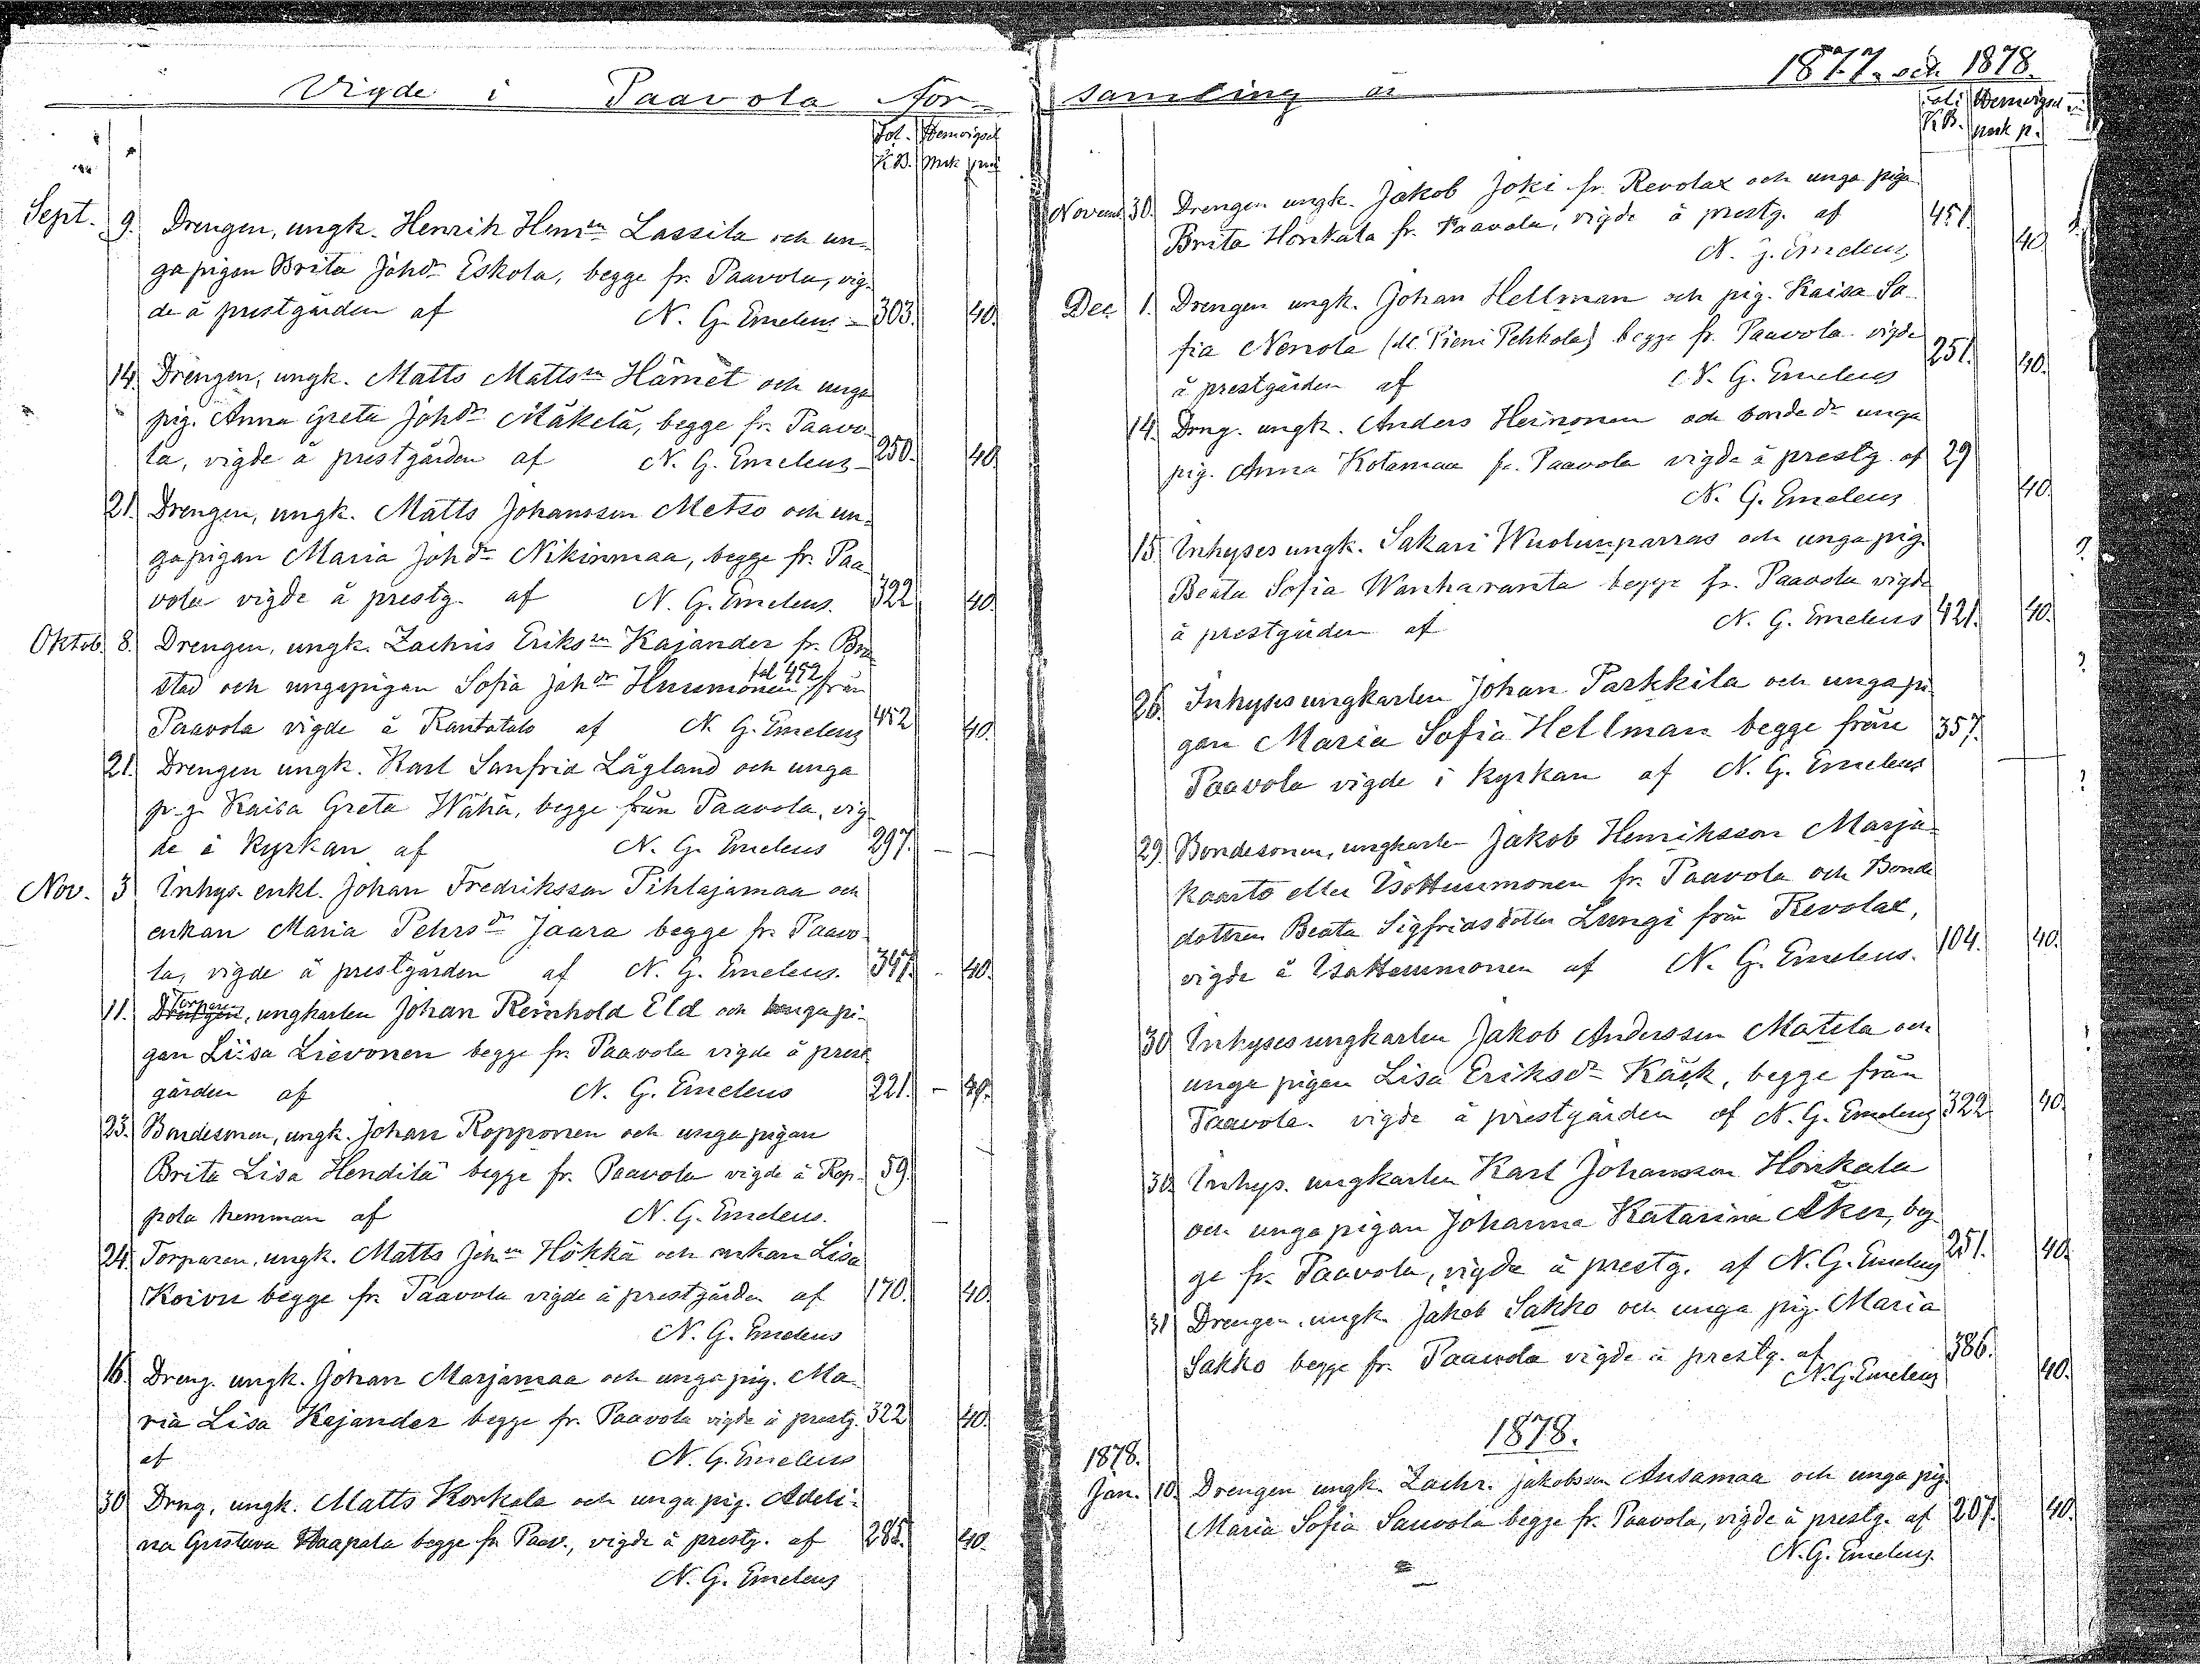 Vigde i Paavola för-
Fol. Hemvigsel
K.B. mrk pni
Sept. 9. Drengen, ungk. Henrik Henrsn Lassila och un-
gapigan Brita Johdr Eskola, begge fr. Paavola, vig-
de å prestgården af N. G. Emeleus 303. 40.
14. Drengen, ungk. Matts Mattssn Hämet och unga
pig. Anna Greta Johdr Mäkelä, begge fr. Paavo-
la, vigde å prestgården af N. G. Emeleus 250. 40.
21. Drengen, ungk. Matts Johansson Metso och un-
gapigan Maria Johdr Nikinmaa, begge fr. Paa-
vola vigde å prestg. af N. G. Emeleus. 322 40.
Oktob. 8. Drengen, ungk. Zachris Erikssn Kajander fr. Bra-
stad och ungapigan Sofia Johdr Huumonen fol 452 från
Paavola vigde å Rantatalo af N. G. Emeleus 452 40.
21. Drengen ungk. Karl Sanfrid Lågland och unga
p.g. Kaisa Greta Wähä, begge från Paavola, vig-
de i Kyrkan af N. G. Emeleus 297. — —
Nov. 3 Inhys. enkl. Johan Fredriksson Pihlajamaa och
enkan Maria Pehrsdr Jaara begge fr. Paavo-
la, vigde å prestgården af N. G. Emeleus. 347. - 40.
11. Torparen, ungkarlen Johan Reinhold Eld och ungapi-
gan Liisa Lievonen begge fr. Paavola vigde å prest-
gården af N. G. Emeleus 221. - 40.
23. Bondesonen, ungk. Johan Ropponen och unga pigan
Brita Lisa Hendilä begge fr. Paavola vigde å Rop- 59.
pola hemman af N. G. Emeleus. —
24. Torparen, ungk. Matts Johsn Hökkä och enkan Lisa
Koivu begge fr. Paavola vigde å prestgården af 170. 40.
N. G. Emeleus
16. Dreng. ungk. Johan Marjamaa och unga pig. Ma-
ria Lisa Kajander begge fr. Paavola vigde å prestg. 322 40.
af N. G. Emeleus
30 Drng, ungk. Matts Korkala och unga pig. Adeli-
na Gustava Haapala begge fr. Paav., vigde å prestg. af 285. 40.
N. G. Emeleus
1877. och 1878.
samling år
Foli Hemvigsel
K.B. mrk p.
Novemb 30. Drengen ungk. Jakob Joki fr. Revolax och unga piga
Brita Honkala fr. Paavola, vigde å prestg. af 451. 40.
N. G. Emeleus,
Dec 1. Drengen ungk. Johan Hellman och pig. Kaisa So-
fia Nenola (el. Pieni Pehkola) begge fr. Paavola vigde
å prestgården af N. G. Emeleus 251. 40.
14. Drng. ungk. Anders Heinonen och bonde dr unga
pig. Anna Kotamaa fr. Paavola vigde å prestg. af 29 40.
N. G. Emeleus
15. Inhyses ungk. Sakari Wuolunparras och unga pig.
Beata Sofia Wanharanta begge fr. Paavola vigde
å prestgården af N. G. Emeleus 421. 40.
26. Inhyses ungkarlen Johan Parkkila och ungapi-
gan Maria Sofia Hellman begge från 357.
Paavola vigde i kyrkan af N. G. Emeleus
29. Bondesonen, ungkarlen Jakob Henriksson Marja-
kaarto eller Isottuumonen fr. Paavola och Bonde
dottren Beata Sigfridsdotter Lungi från Revolax,
vigde å Isottuumonen af N. G. Emeleus. 104. 40.
30 Inhyses ungkarlen Jakob Andersson Matela och
unga pigan Lisa Eriksdr Käck, begge från
Paavola. vigde å prestgården af N. G. Emeleus 322 40.
30. Inhys. ungkarlen Karl Johansson Honkala
och unga pigan Johanna Katarina Åker, beg-
ge fr. Paavola, vigde å prestg. af N. G. Emeleus 251. 40.
31 Drengen, ungk. Jakob Sakko och unga pig. Maria
Sakko begge fr. Paavola vigde å prestg. af 386. 40.
N. G. Emeleus
1878.
1878.
Jan. 10. Drengen ungk. Zachr. Jakobsson Ansamaa och unga pig.
Maria Sofia Sauvola begge fr. Paavola, vigde å prestg. af 207. 40.
N. G. Emeleus.